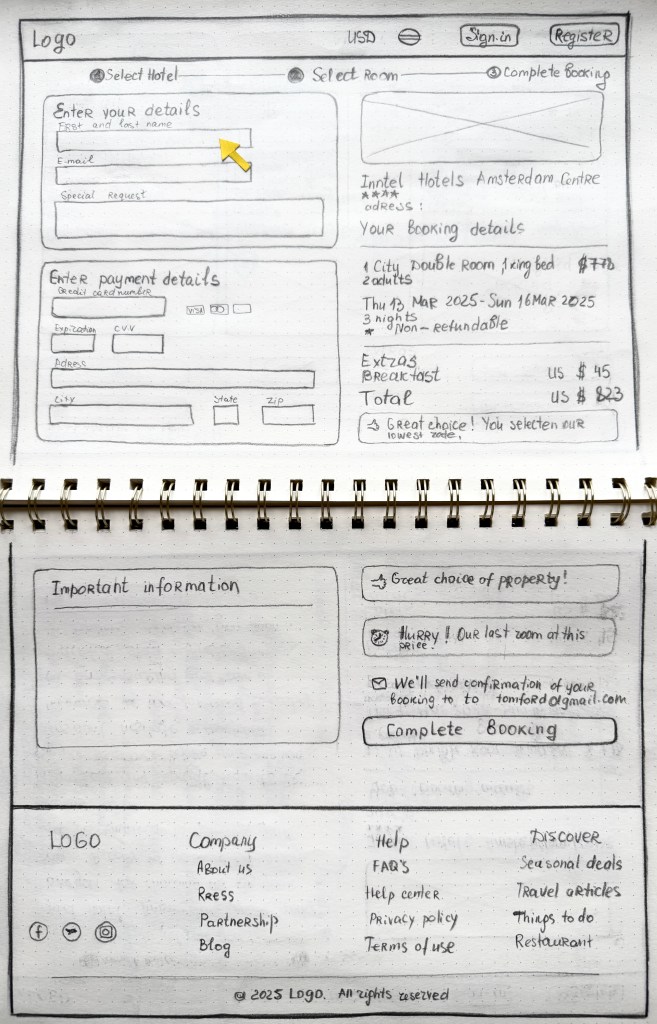 Logo
USD
Sign.in
Register
Select Hotel
Select Room
3 Complete Booking
Enter your details
First and last name
E.mail
Special Request
Enter payment details
Credit card number
VISA
Expiration
CVV
Adress
City
State
Zip
Inntel Hotels Amsterdam Centre
★★★★
adress :
Your Booking details
1 City Double Room, 1 king bed
2 adults
Thu 13 Mar 2025 - Sun 16 Mar 2025
3 nights
* Non-refundable
Extras
Breakfast US $ 45
Total US $ 823
Great choice! You selecten our
lowest
Important information
Great choice of property!
Hurry! Our last room at this
price!
We'll send confirmation of your
booking to to tomford@gmail.com
Complete Booking
LOGO
Company
About us
Press
Partnership
Blog
Help
FAQ's
Help center
Privacy policy
Terms of use
Discover
Seasonal deals
Travel articles
Things to do
Restaurant
© 2025 Logo. All rights reserved